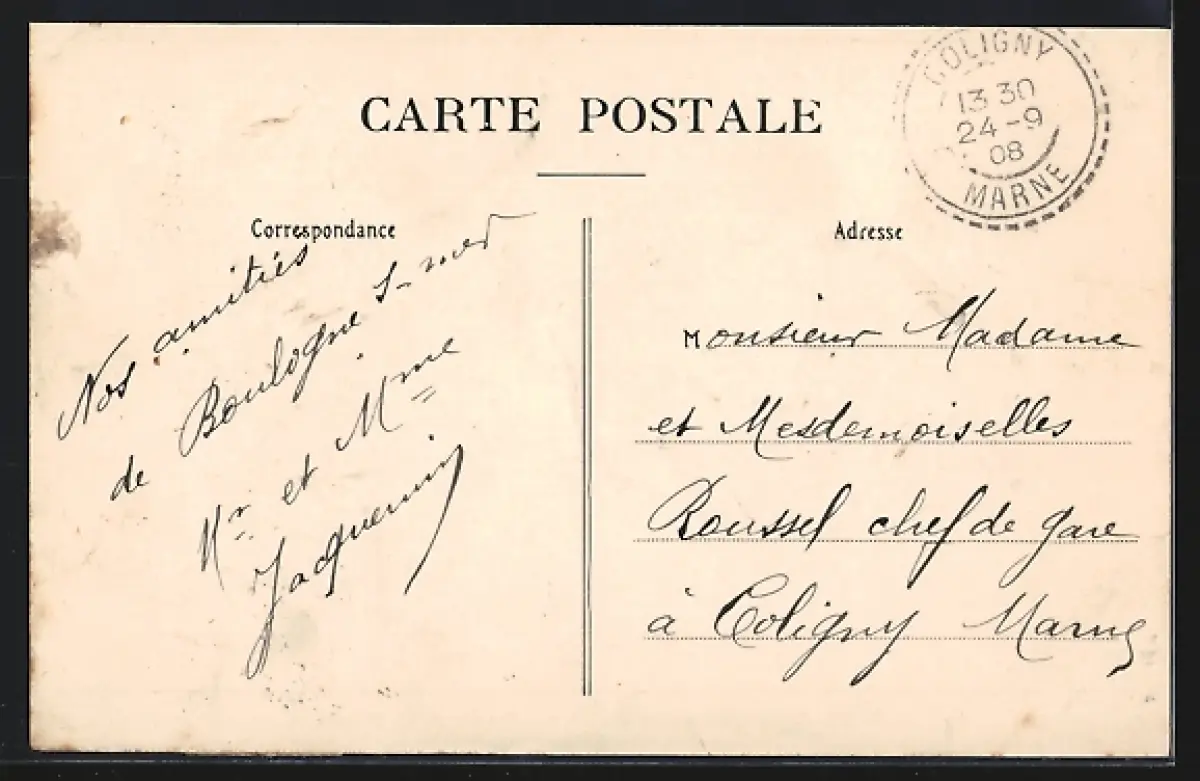 CARTE POSTALE
COLIGNY
13 30
24 - 9
08
MARNE
Correspondance
Nos amitiés
de Boulogne s-mer
Mr et Mme
Jacquemin
Adresse
Monsieur Madame
et Mesdemoiselles
Roussel chef de gare
à Coligny Marne